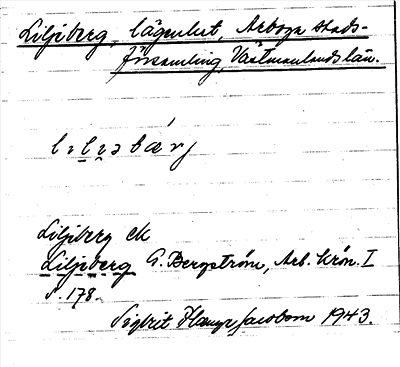 Liljeberg, lägenhet, Arboga stads-
församling, Västmanlands län.
Liljeberg ek
Liljeberg G. Bergström, Arb. krön. I
s. 178.
Sigbrit Jacobson 1943.